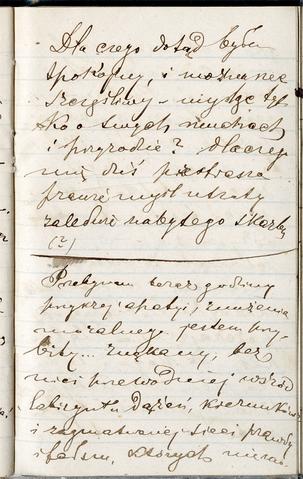 Dla czego dotąd byłem
spokojny, i można rzec
szczęśliwy – myśląc tyl
ko o swych muchach
i przyrodzie? dlaczego
mię dziś przestrasza
prawie myśl utraty
zaledwie nabytego skarbu
(?)
Przebywam teraz godziny
przykrej apatyi, znużenia
moralnego jestem przy
bity... znękany, bez
nici przewodniej wśród
labiryntu dążeń, kierunków
i zagmatwanej sieci prawdy
i fałszu, których